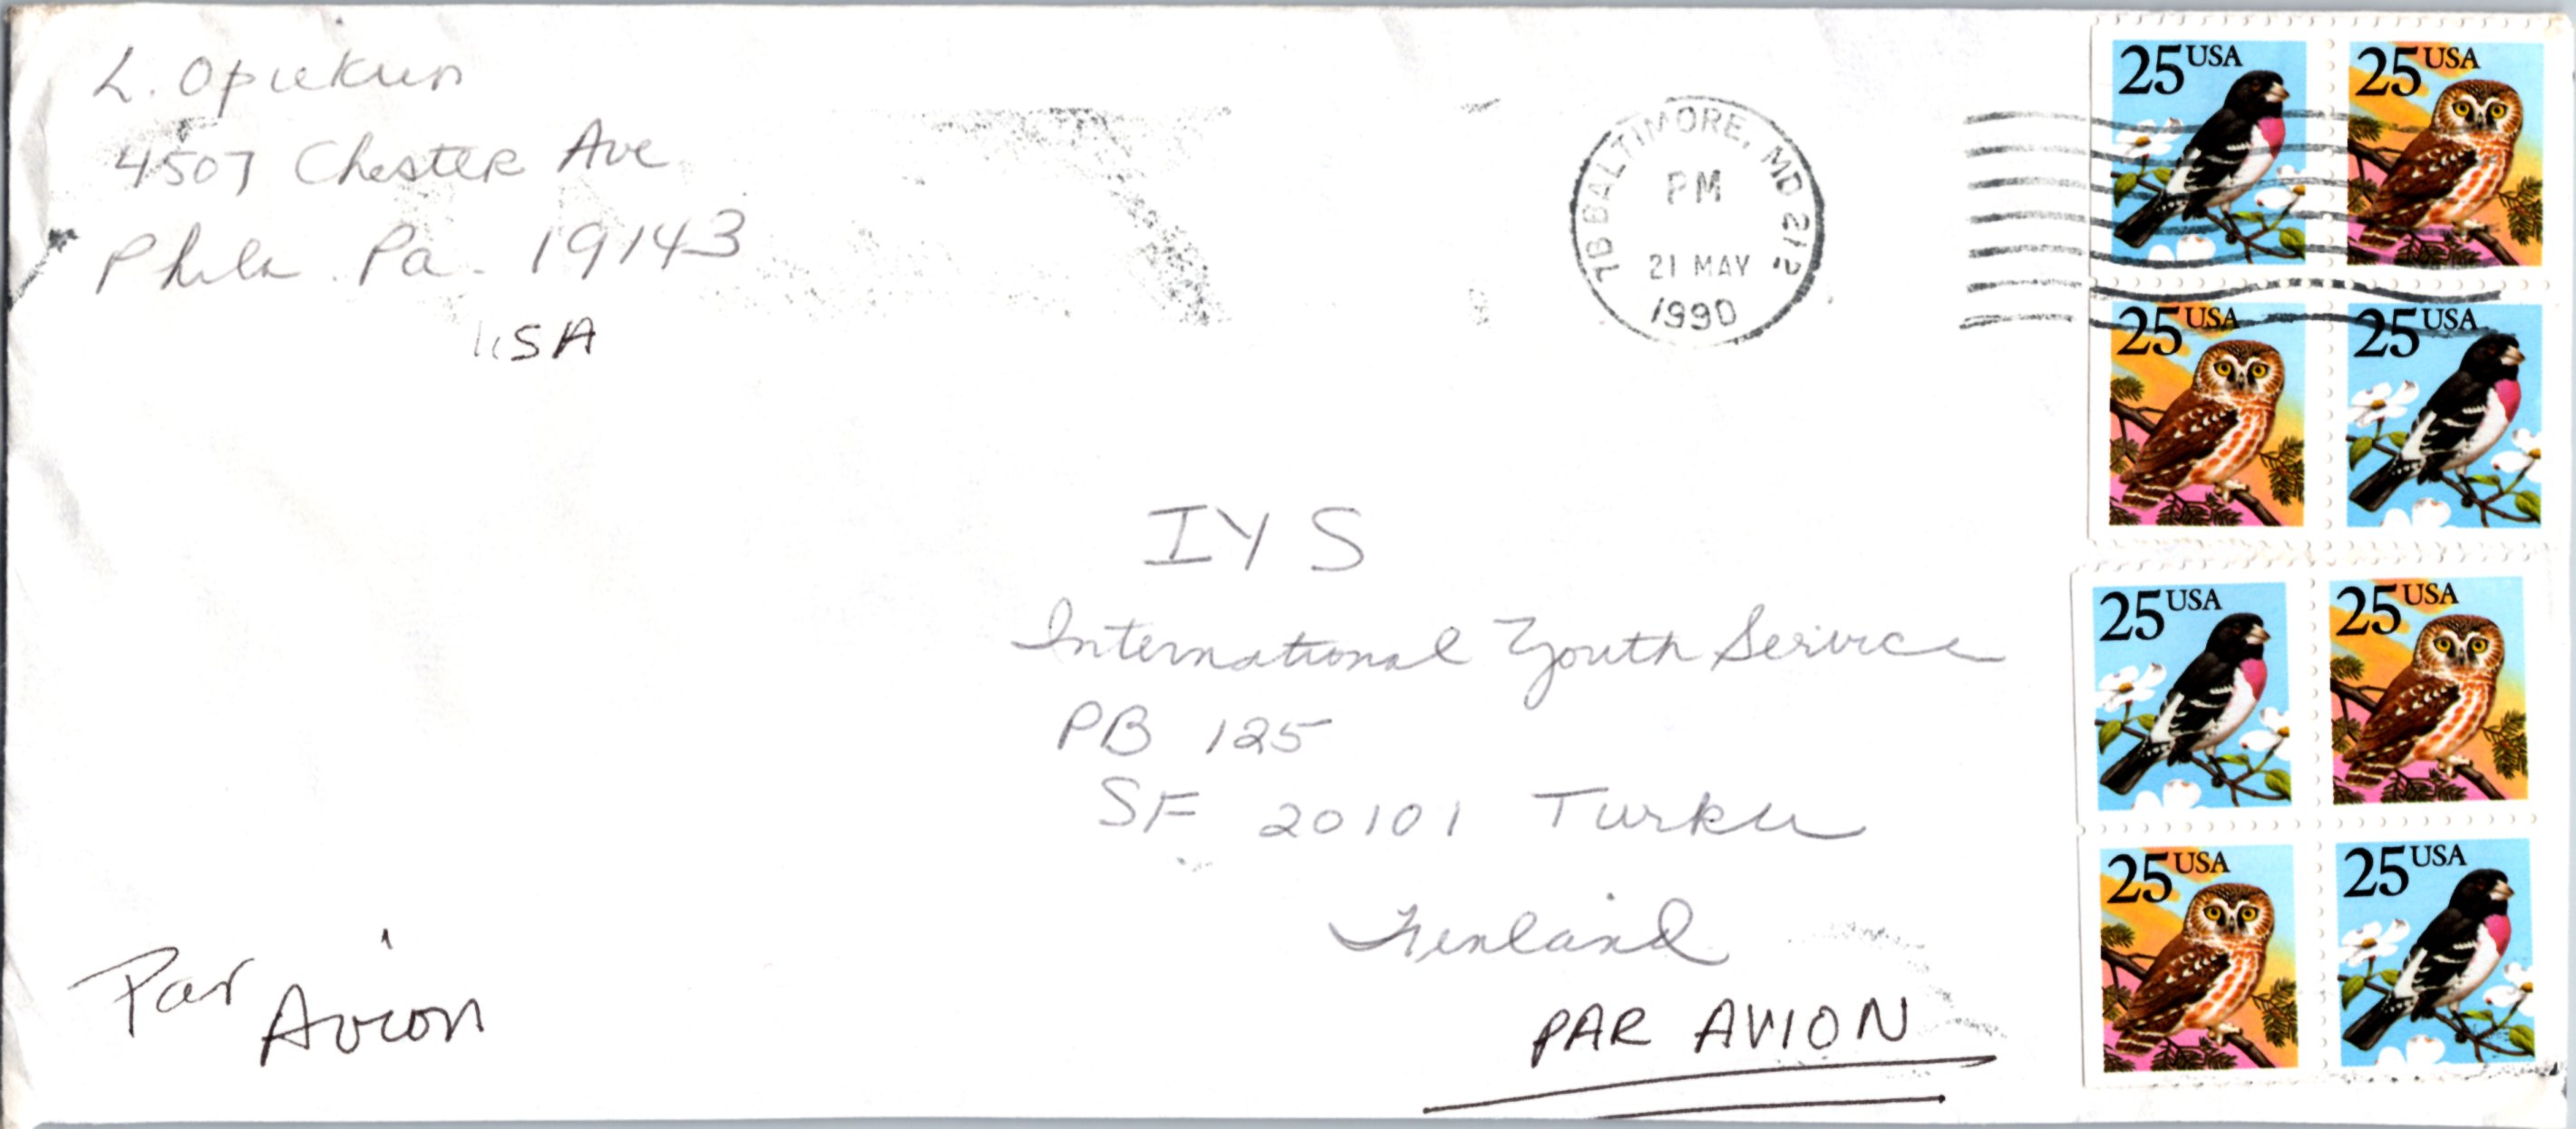 L. Opuekun
4507 Chester Ave
Phila. Pa. 19143
USA
1B BALTIMORE, MD 212
PM
21 MAY
1990
25 USA
25 USA
25 USA
25 USA
25 USA
25 USA
25 USA
25 USA
IYS
International Youth Service
PB 125
SF 20101 Turku
Finland
Par
Avion
PAR AVION